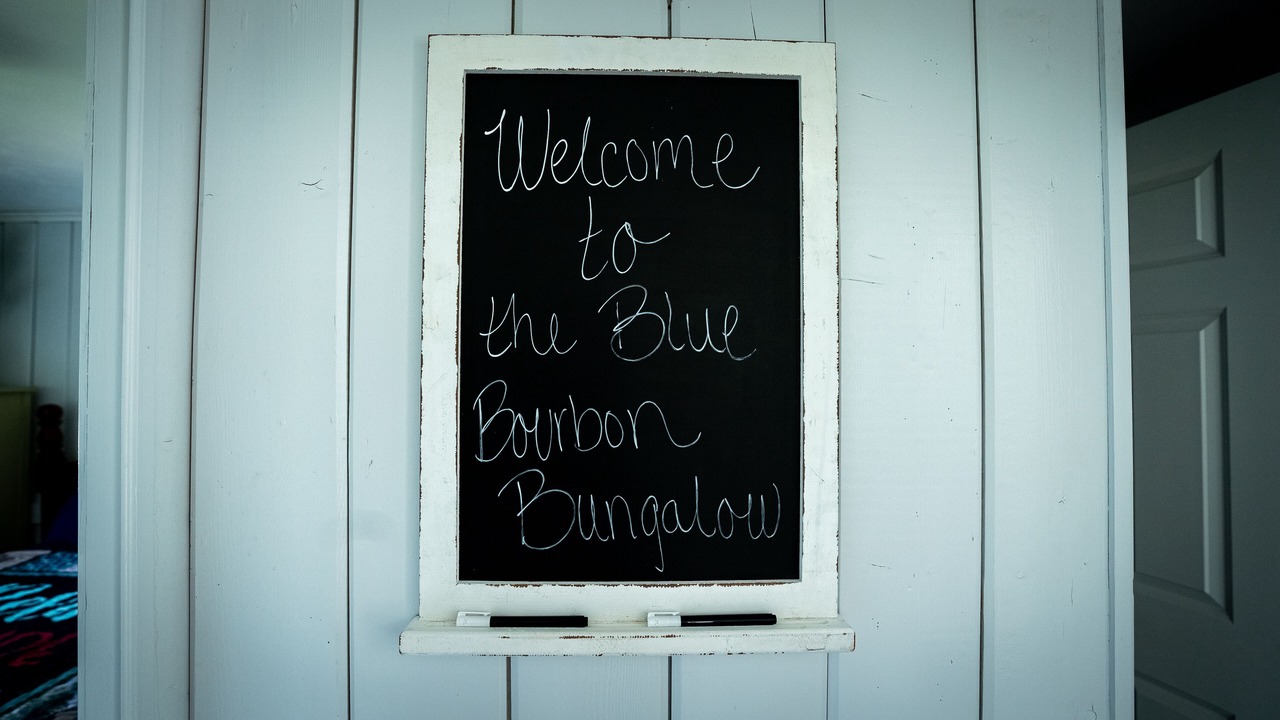 Welcome
to
the Blue
Bourbon
Bungalow